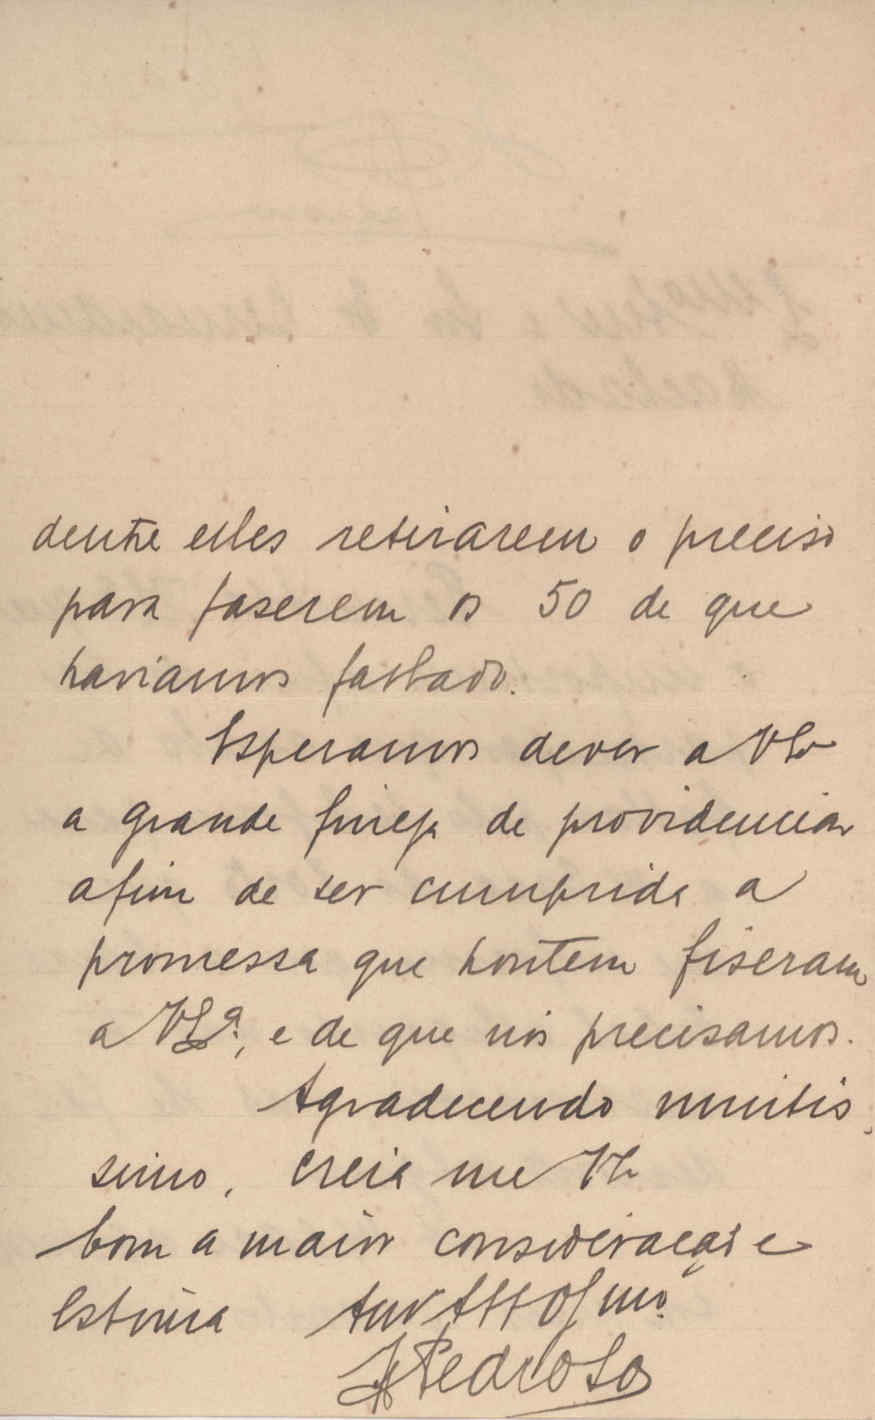 dentre elles retirarem o preciso
para faserem os 50 de que
haviamos fallado.
Esperamos dever a VEx
a grande fineza de providenciar
afim de ser cumprida a
promessa que hontem fiseram
a VEx.ª, e de que nós precisamos.
Agradecendo muitis
simo, creia me VE
Com a maior consideração e
Estima Amº Attº
Pedroso